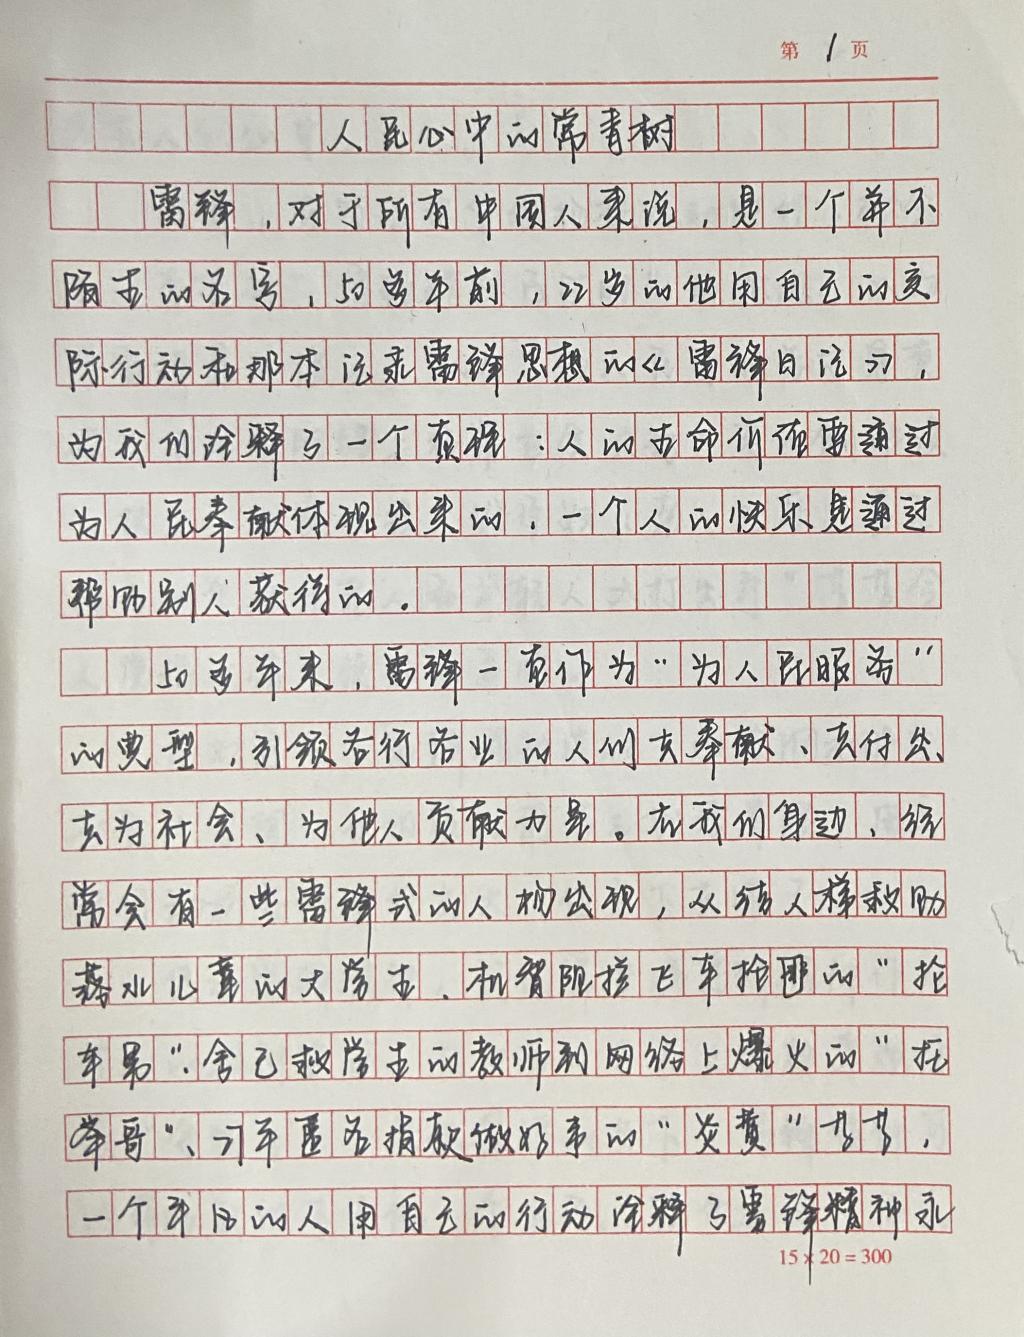 第1页
人民心中的常青树
雷锋,对于所有中国人来说,是一个并不
陌生的名字,50多年前,22岁的他用自己的实
际行动和那本记录雷锋思想的《雷锋日记》,
为我们诠释了一个真理:人的生命价值要通过
为人民奉献体现出来的,一个人的快乐是通过
帮助别人获得的。
50多年来,雷锋一直作为“为人民服务”
的典型,引领各行各业的人们去奉献、去付出、
去为社会、为他人贡献力量。在我们身边,经
常会有一些雷锋式的人物出现,从结人梯救助
落水儿童的大学生、机智阻拦飞车抢匪的“抡
车男”、舍己救学生的教师到网络上爆火的“托
举哥”、27年匿名捐款做好事的“炎黄”等等,
一个平凡的人用自己的行动诠释了雷锋精神永
15×20=300